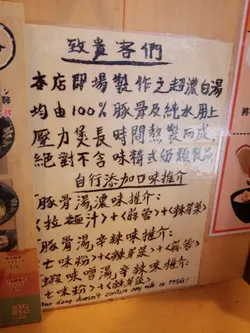 致貴客們
本店即場製作之超濃白湯
均由100%豚骨及純水用上
壓力煲長時間熬製而成,
絕對不含味精或奶類製品
自行添加口味推介
豚骨湯濃味推介:
<拉麵汁>+<蒜蓉>+<辣芽菜>
豚骨湯,辛辣味推介:
七味粉>+<辣芽菜>+<蒜蓉>
蝦味噌湯,辛辣味推介:
七味粉>+<辣芽菜>
soup doesn't contain any milk or MSG!